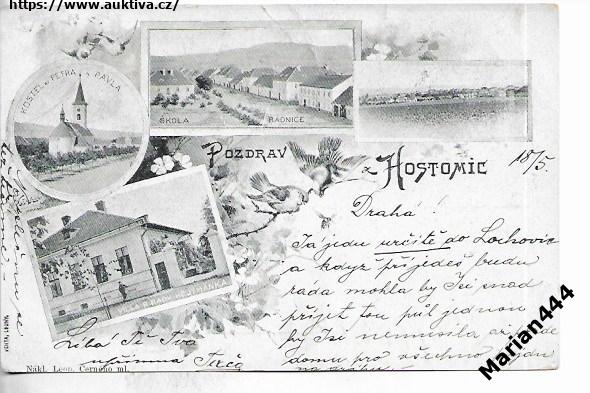 https://www.auktiva.cz/
KOSTEL s. PETRA a PAVLA
ŠKOLA
RADNICE
POZDRAV
z HOSTOMIC
18/5.
Drahá!
Já jedu určitě do Lochovic
a když přijedeš budu
ráda mohla by jsi snad
přijet tou půl jednou
by jsi nemusila až
domu pro všechno
Líbá Tě Tvá
upřímna
Nákl. Leon. Černého ml.
Marian444